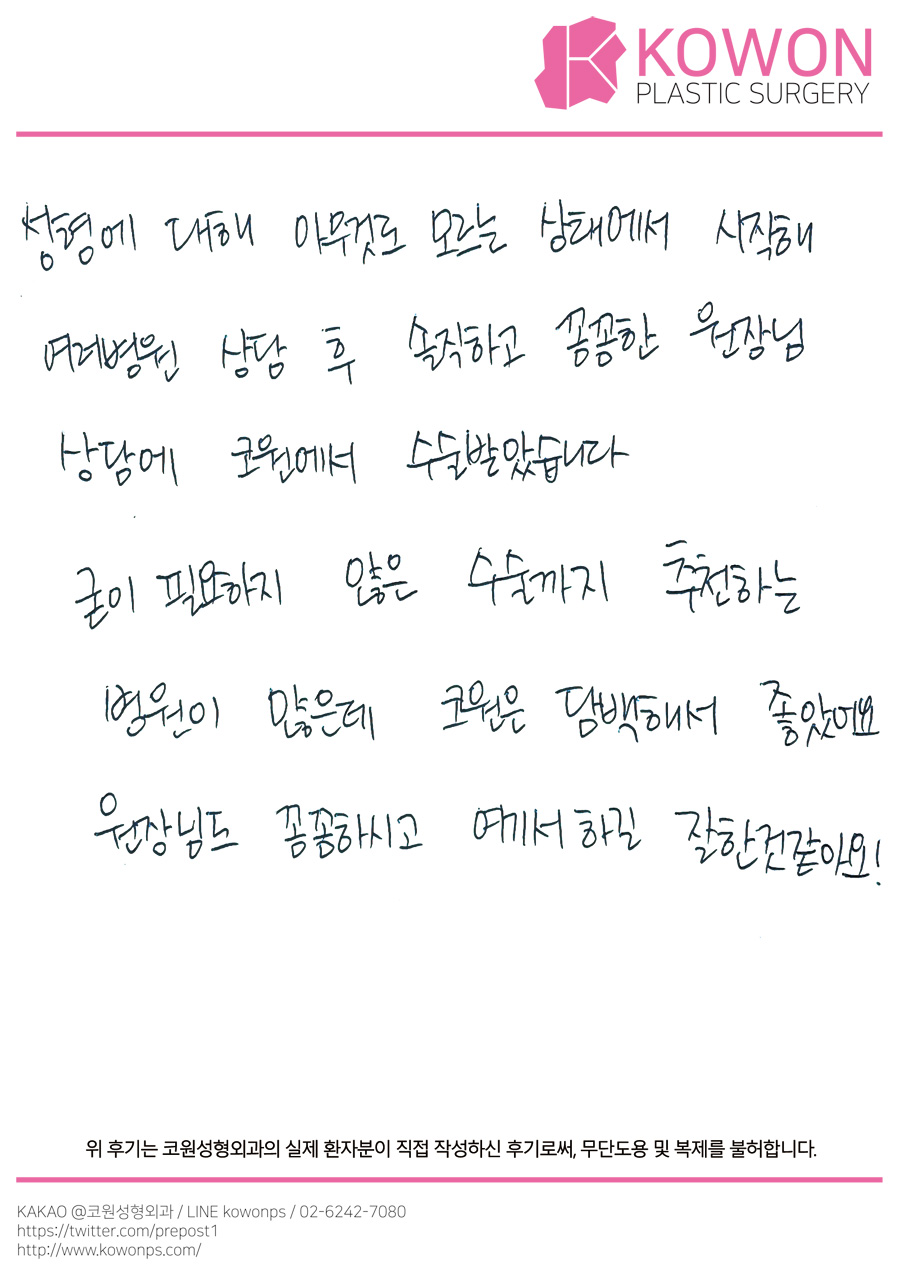 KOWON
PLASTIC SURGERY
성형에 대해 아무것도 모르는 상태에서 시작해
여러병원 상담 후 솔직하고 꼼꼼한 원장님
상담에 코원에서 수술받았습니다
굳이 필요하지 않은 수술까지 추천하는
병원이 많은데 코원은 담백해서 좋았어요
원장님도 꼼꼼하시고 여기서 하길 잘한것같아요!
위 후기는 코원성형외과의 실제 환자분이 직접 작성하신 후기로써, 무단도용 및 복제를 불허합니다.
KAKAO @코원성형외과 / LINE kowonps / 02-6242-7080
https://twitter.com/prepost1
http://www.kowonps.com/